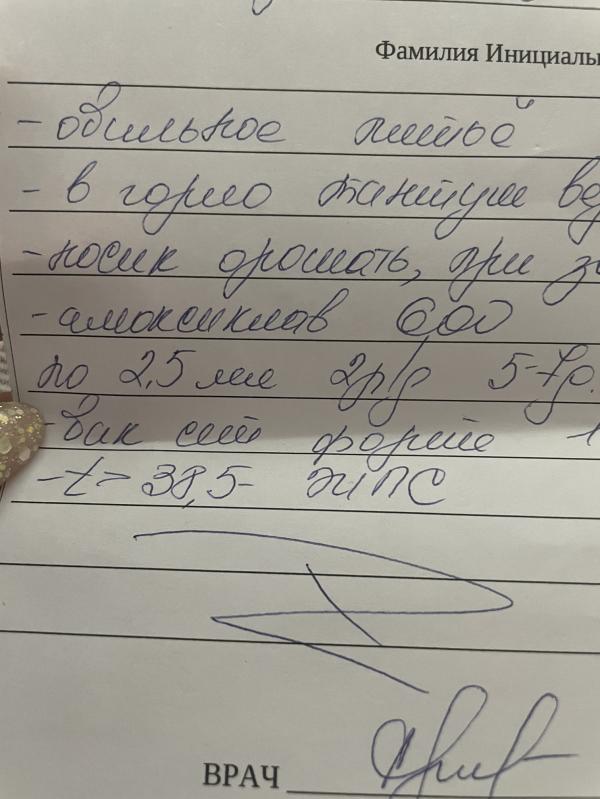 Фамилия Инициалы
- обильное питьё
- в горло Тантум вер
- носик орошать, при з
- амоксиклав 600
по 2,5 мл 2р/д 5-7д.
- Бак сет форте 1
- t > 38,5 - ЖПС
ВРАЧ